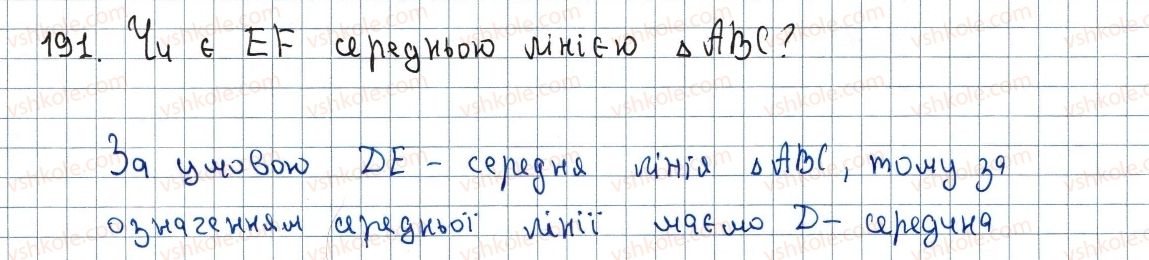 191. Чи є EF середньою лінією △ABC?
За умовою DE – середня лінія △ABC, тому за
означенням середньої лінії маємо D – середина